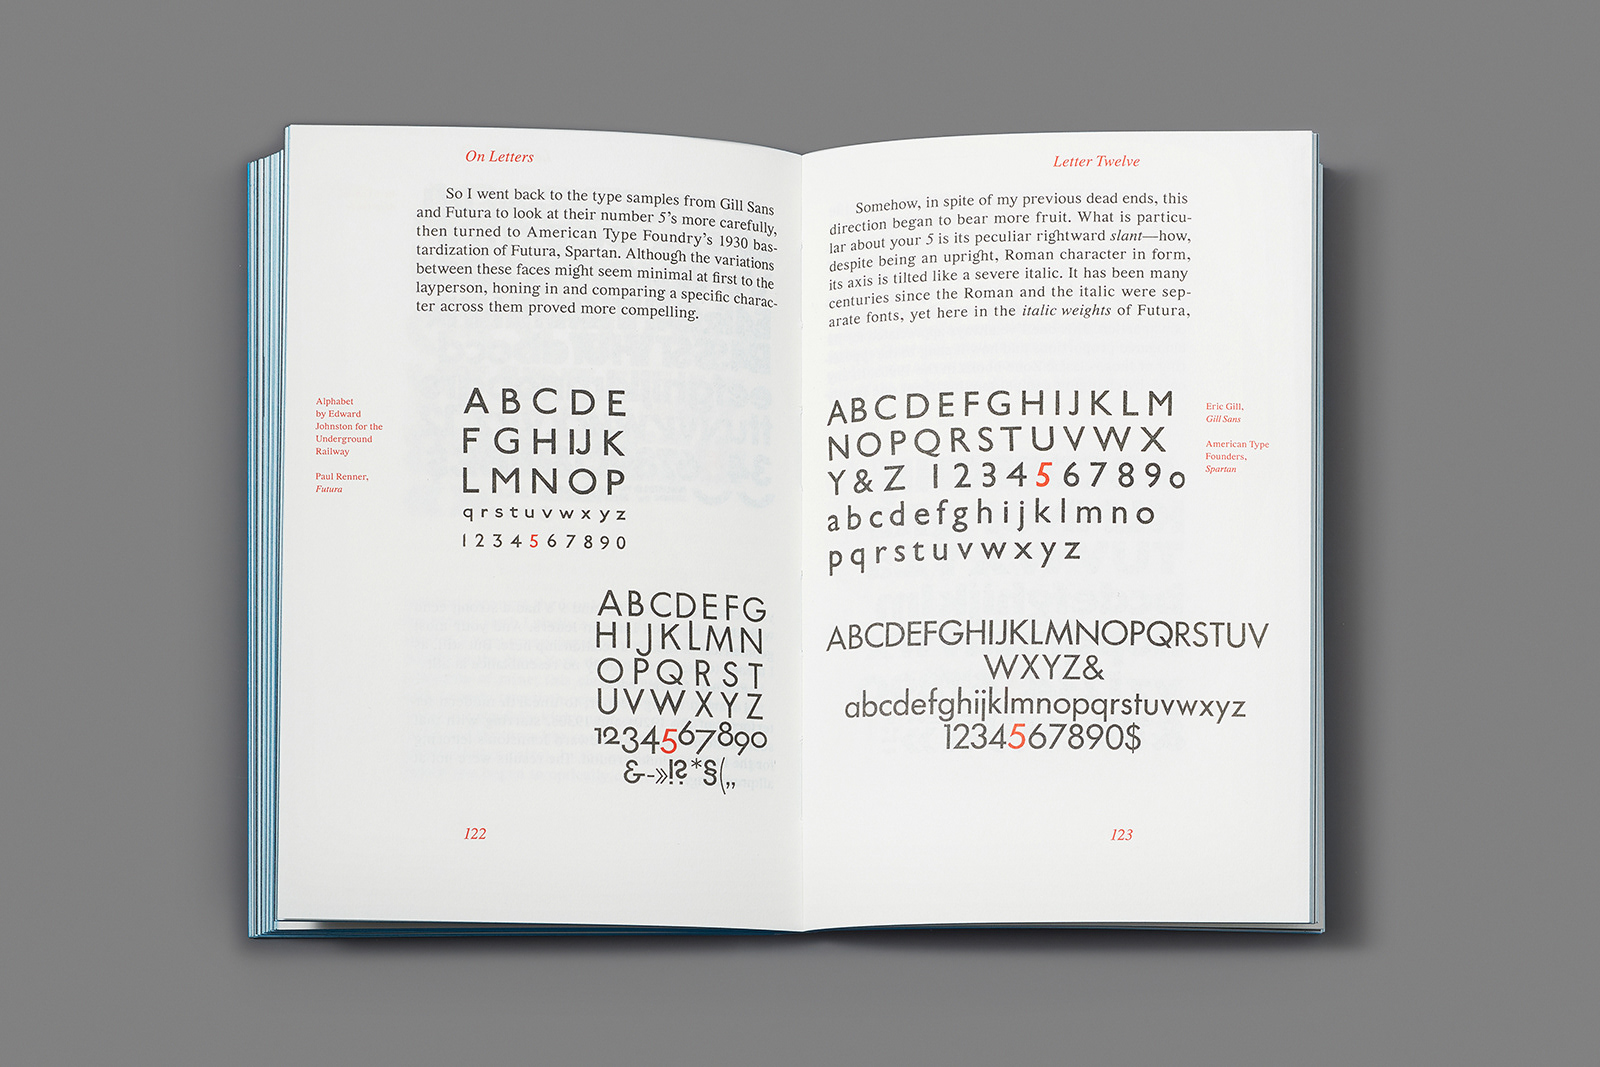 On Letters
So I went back to the type samples from Gill Sans
and Futura to look at their number 5's more carefully,
then turned to American Type Foundry's 1930 bas-
tardization of Futura, Spartan. Although the variations
between these faces might seem minimal at first to the
layperson, honing in and comparing a specific charac-
ter across them proved more compelling.
Alphabet
by Edward
Johnston for the
Underground
Railway
Paul Renner,
Futura
A B C D E
F G H I J K
L M N O P
q r s t u v w x y z
1 2 3 4 5 6 7 8 9 0
ABCDEFG
HIJKLMN
OPQRST
UVWXYZ
1234567890
&-»!?*§(„
122
Letter Twelve
Somehow, in spite of my previous dead ends, this
direction began to bear more fruit. What is particu-
lar about your 5 is its peculiar rightward slant—how,
despite being an upright, Roman character in form,
its axis is tilted like a severe italic. It has been many
centuries since the Roman and the italic were sep-
arate fonts, yet here in the italic weights of Futura,
ABCDEFGHIJKLM
NOPQRSTUVWX
Y&Z 1234567890
abcdefghijklmno
pqrstuvwxyz
Eric Gill,
Gill Sans
American Type
Founders,
Spartan
ABCDEFGHIJKLMNOPQRSTUV
WXYZ&
abcdefghijklmnopqrstuvwxyz
1234567890$
123